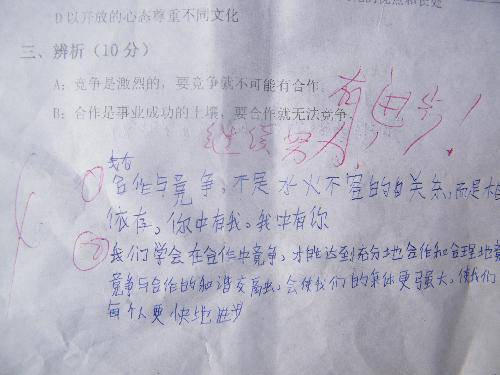 优点和长处
D 以开放的心态尊重不同文化
三、辨析（10分）
A：竞争是激烈的，要竞争就不可能有合作。
B：合作是事业成功的土壤，要合作就无法竞争。
有进步！
继续努力！
合作与竞争，不是水火不容的的关系，而是相
依存，你中有我，我中有你
我们学会在合作中竞争，才能达到充分地合作和合理地竞
竞争与合作的和谐交融，会使我们的集体更强大，使我们
每个人更快地进步